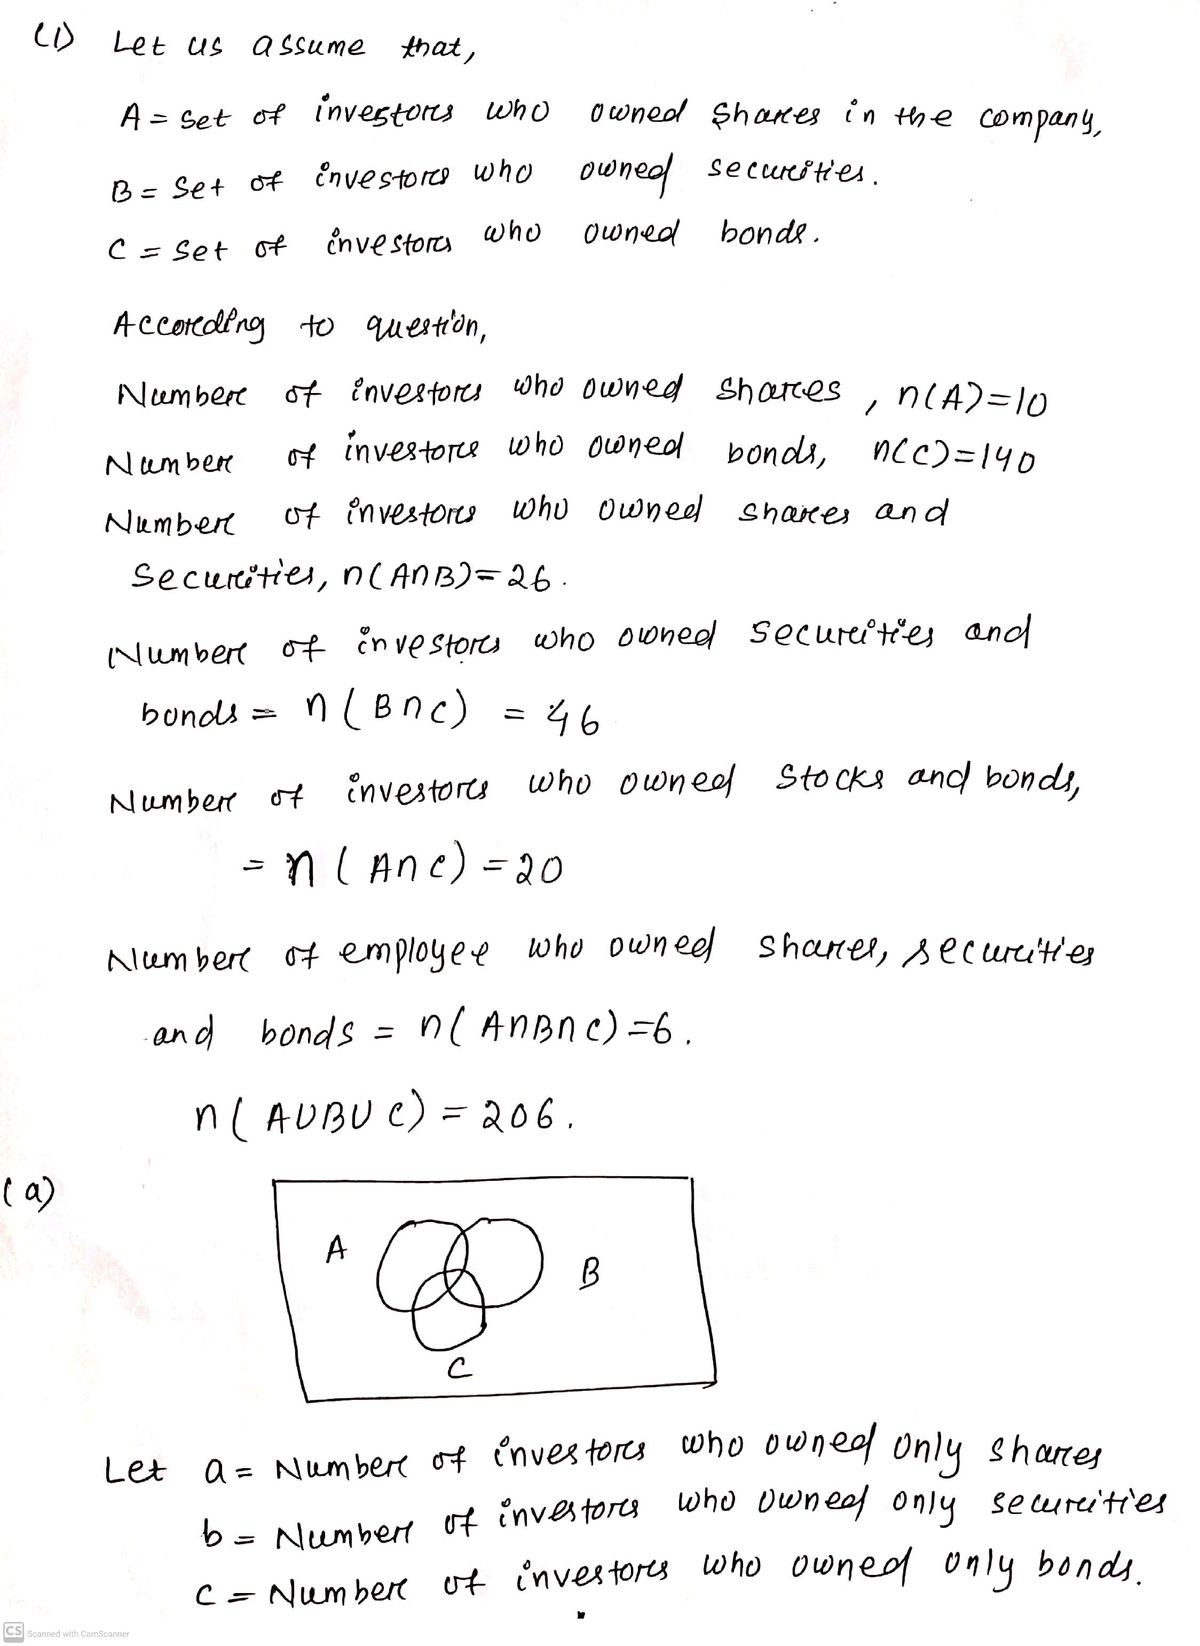 (1) Let us assume that,
A = Set of investors who owned Shares in the company,
B = Set of investors who owned securities.
C = Set of investors who owned bonds.
According to question,
Number of investors who owned shares, n(A)=10
Number of investors who owned bonds, n(C)=140
Number of investors who owned shares and
Securities, n(A∩B)=26.
Number of investors who owned securities and
bonds = n(B∩C) = 46
Number of investors who owned Stocks and bonds,
= n(A∩C) = 20
Number of employee who owned shares, securities
and bonds = n(A∩B∩C)=6.
n(A∪B∪C) = 206.
(a)
A
B
C
Let a = Number of investors who owned only shares
b = Number of investors who owned only securities
c = Number of investors who owned only bonds.
CS Scanned with CamScanner